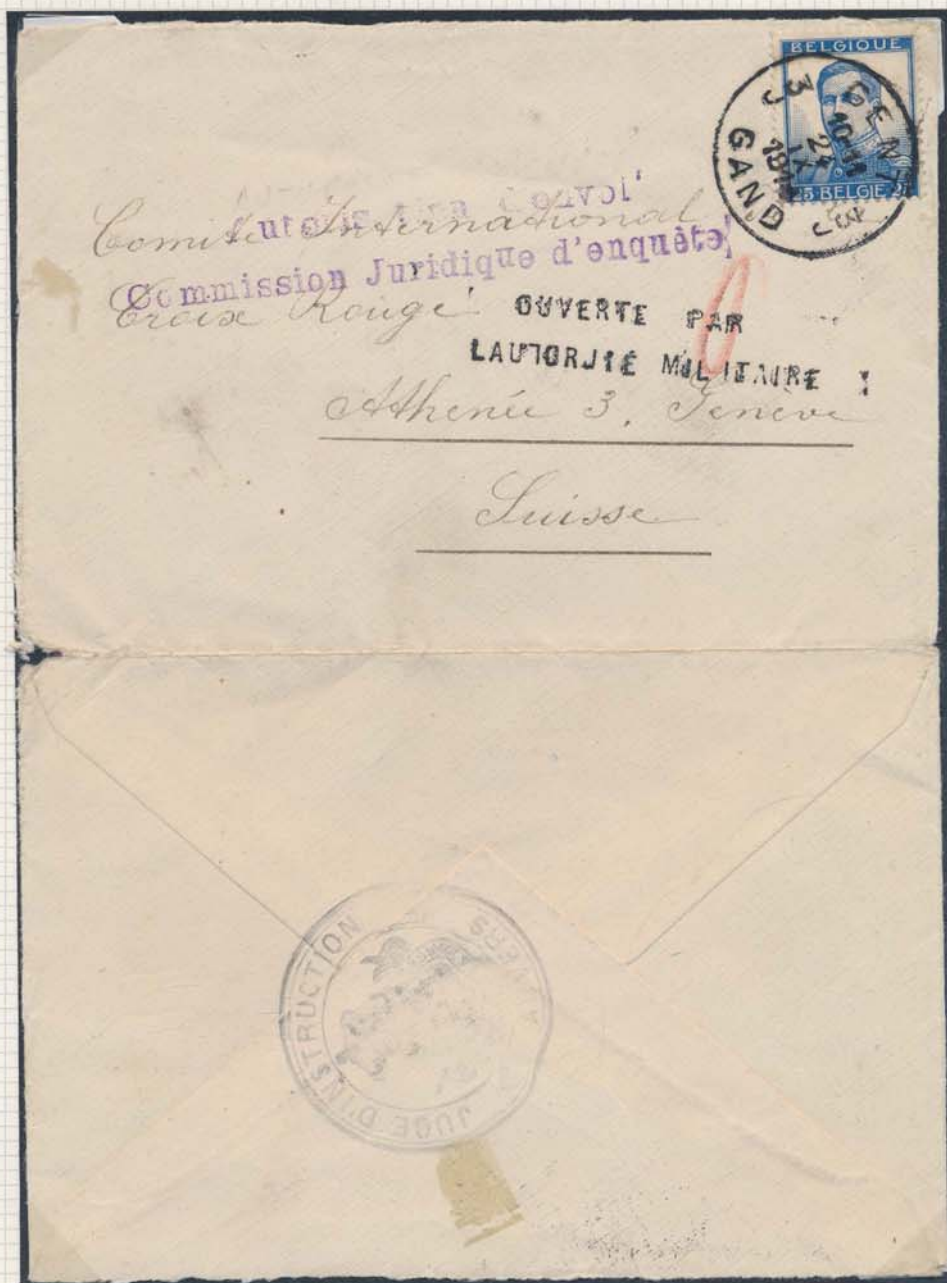 BELGIQUE
25 BELGIE 25
GENT
3 J
10-11
24
IX
GAND
Comité International
Commission Juridique d'enquête
Croix Rouge
OUVERTE PAR
LAUTORJTÉ MILITAIRE
Athenée 3, Genève
Suisse
JUGE D'INSTRUCTION
ANVERS